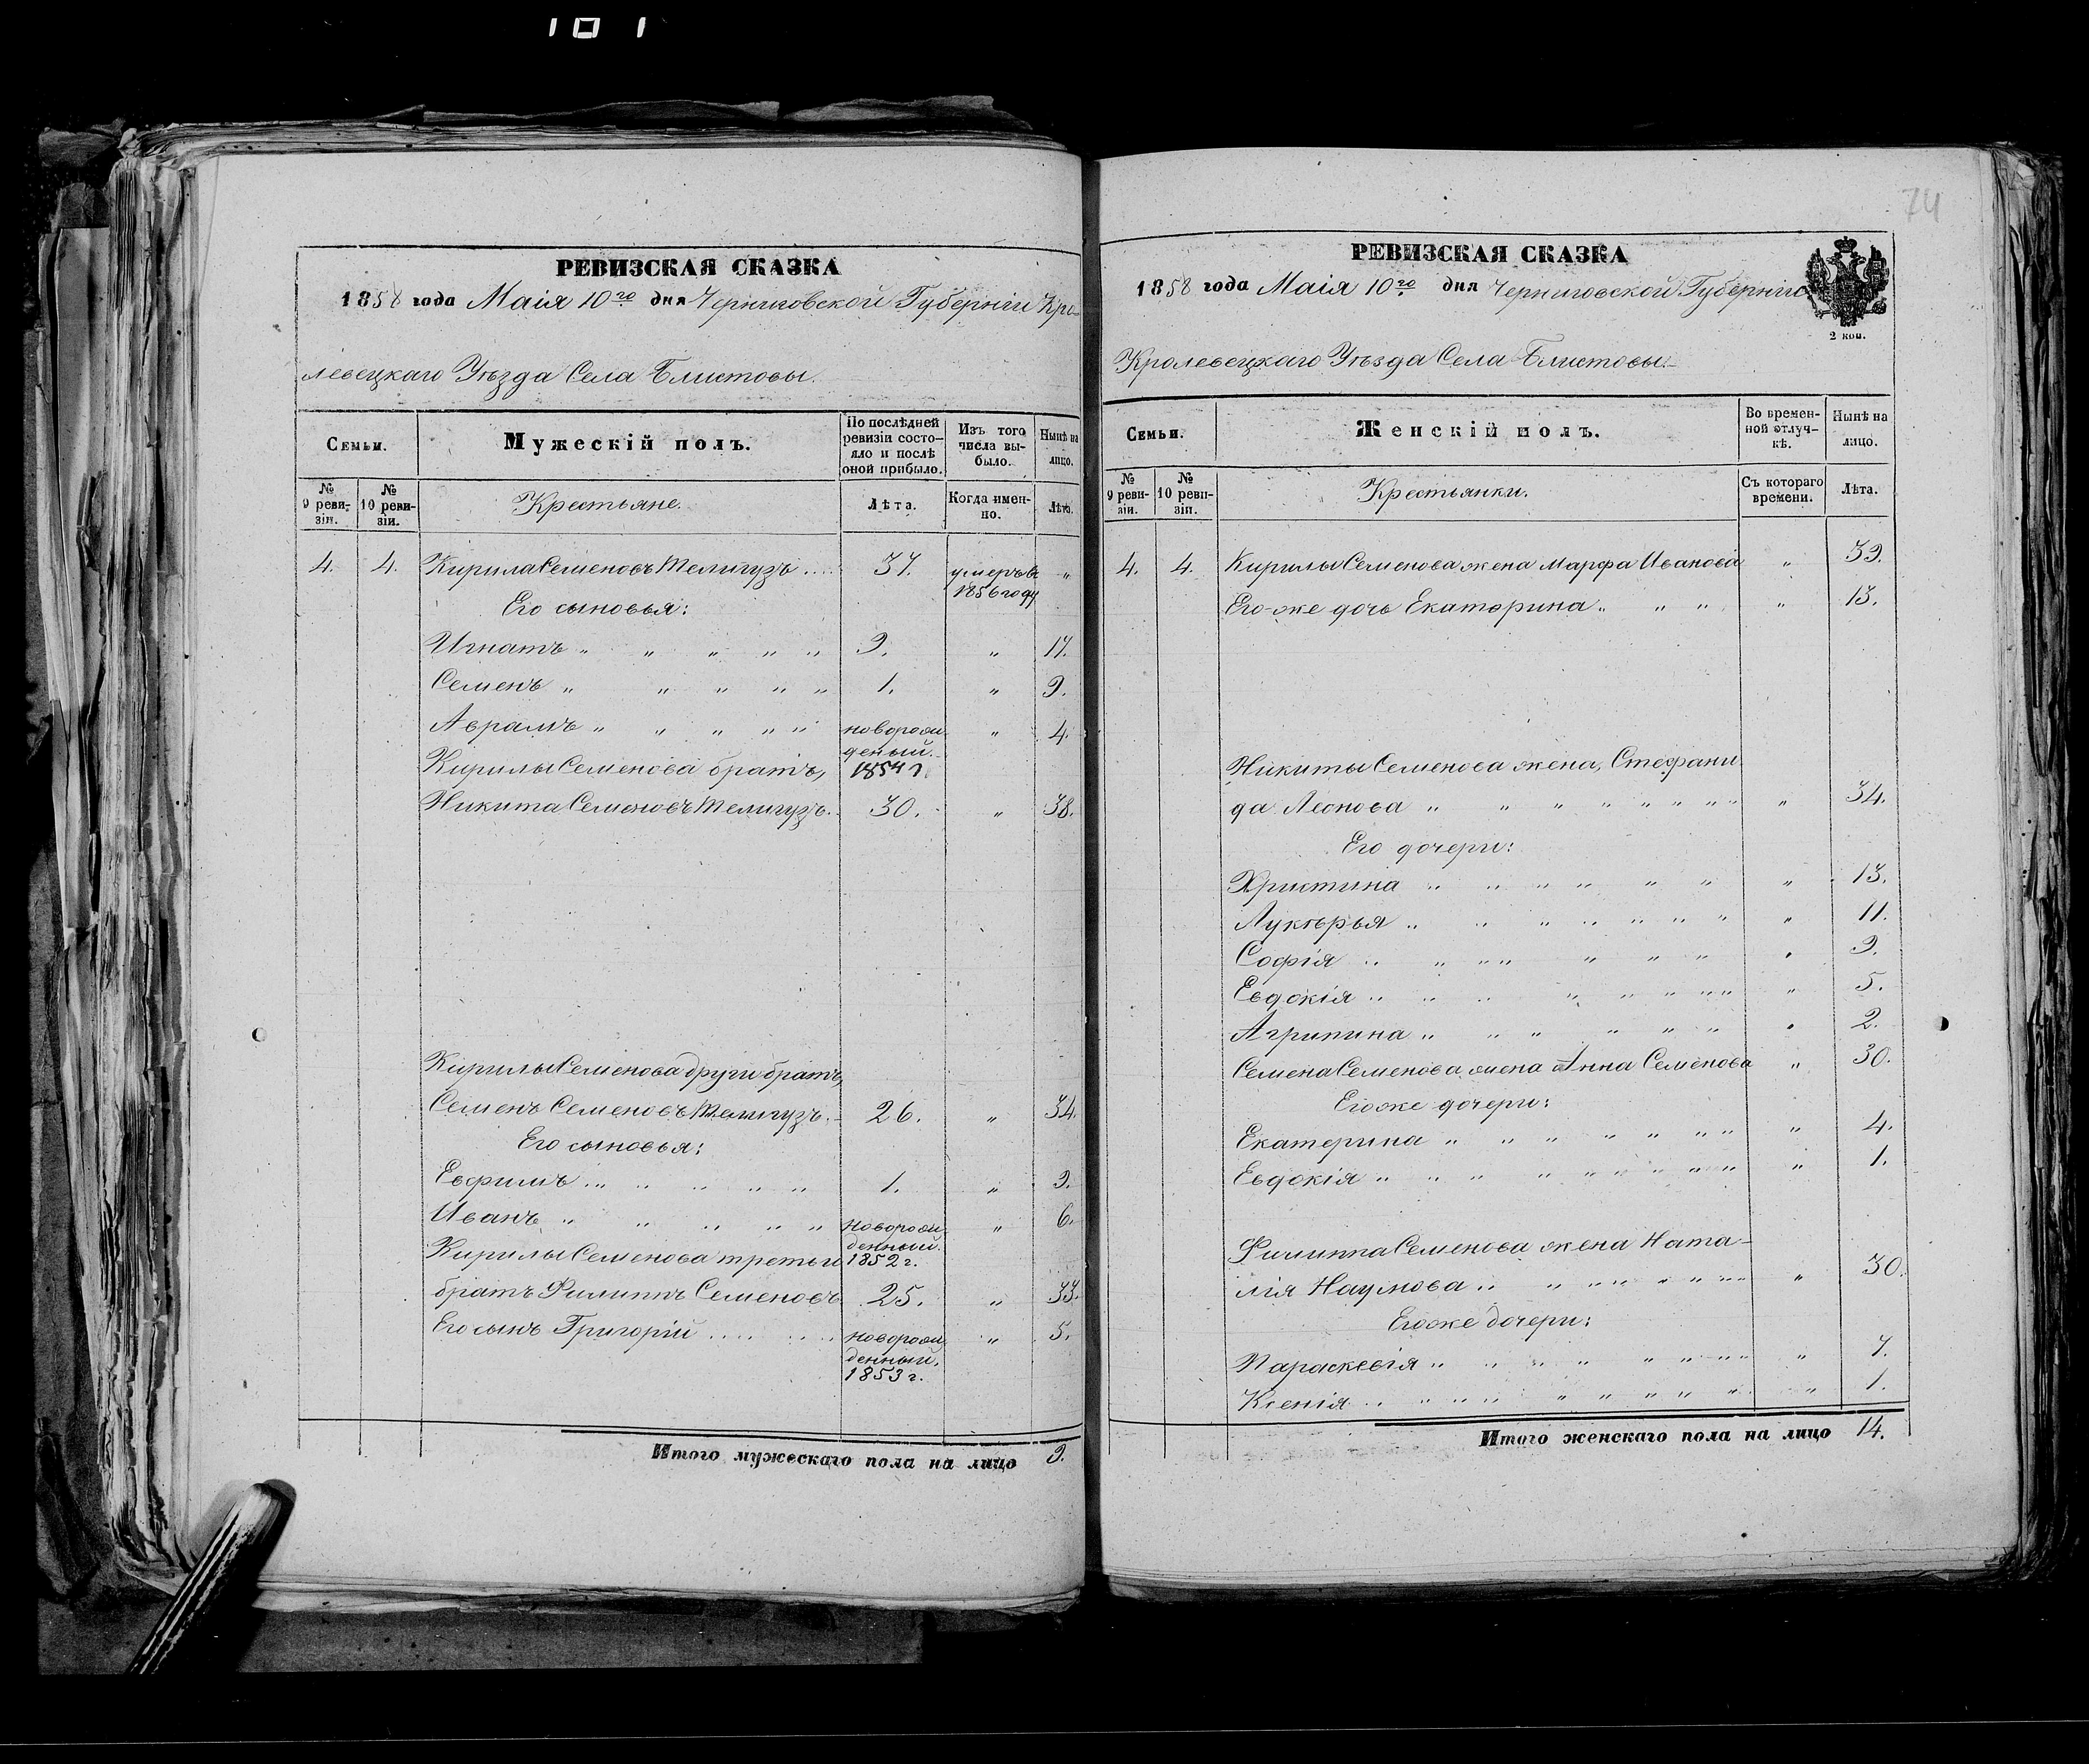 101
РЕВИЗСКАЯ СКАЗКА
1858 года Маія 10го дня Черниговской Губерніи Кро-
левецкаго Уѣзда Села Блистовы.
Семьи.
Мужескій полъ.
По послѣдней ревизіи состо-яло и послѣ оной прибыло.
Изъ того числа вы-было.
Нынѣ на лицо.
№ 9 реви-зіи.
№ 10 реви-зіи.
Крестьяне.
Лѣта.
Когда имен-но.
Лѣта.
4. 4. Кирила Семеновъ Телигузъ .... 37. умеръ въ "
1856 году
Его сыновья:
Игнатъ " " " " " 9. " 17.
Семенъ " " " " " 1. " 9.
Аврамъ " " " " " новорож " 4.
деный.
Кирилы Семенова братъ, 1854 г.
Никита Семеновъ Телигузъ. 30. " 38.
Кирилы Семенова други братъ,
Семенъ Семеновъ Телигузъ. 26. " 34.
Его сыновья:
Евфимъ " " " " " 1. " 9.
Иванъ " " " " " новорож " 6.
денный.
Кирилы Семенова третьи 1852 г.
братъ Филиппъ Семеновъ 25. " 33.
Его сынъ Григорій .... .... новорож " 5.
денный.
1853 г.
Итого мужескаго пола на лицо 9.
74
РЕВИЗСКАЯ СКАЗКА
1858 года Маія 10го дня Черниговской Губерніи
2 коп.
Кролевецкаго Уѣзда Села Блистовы.
Семьи.
Женскій полъ.
Во времен-ной отлуч-кѣ.
Нынѣ на лицо.
№ 9 реви-зіи.
№ 10 реви-зіи.
Крестьянки.
Съ котораго времени.
Лѣта.
4. 4. Кирилы Семенова жена Марфа Иванова " 39.
Его-же дочь Екатерина " " " " 13.
Никиты Семенова жена, Стефани
да Леонова " " " " " " " " " 34.
Его дочери:
Христина " " " " " " " 13.
Лукѣрья " " " " " " " " 11.
Софія " " " " " " " " 9.
Евдокія " " " " " " " " " 5.
Агрипина " " " " " " " 2.
Семена Семенова жена Анна Семенова " 30.
Его же дочери:
Екатерина " " " " " " " " " 4.
Евдокія " " " " " " " " " " " 1.
Филиппа Семенова жена Ната-
лія Наумова " " " " " " " " " 30.
Его же дочери:
Параскевія " " " " " " " " " 7.
Ксенія " " " " " " " " " " " 1.
Итого женскаго пола на лицо 14.